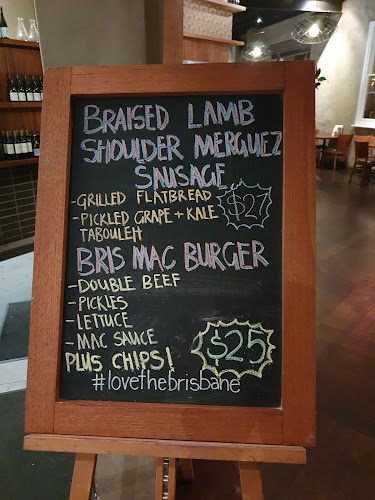 BRAISED LAMB
SHOULDER MERGUEZ
SAUSAGE
- GRILLED FLATBREAD
- PICKLED GRAPE + KALE
TABOULEH
$27
BRIS MAC BURGER
- DOUBLE BEEF
- PICKLES
- LETTUCE
- MAC SAUCE
PLUS CHIPS!
$25
#lovethebrisbane